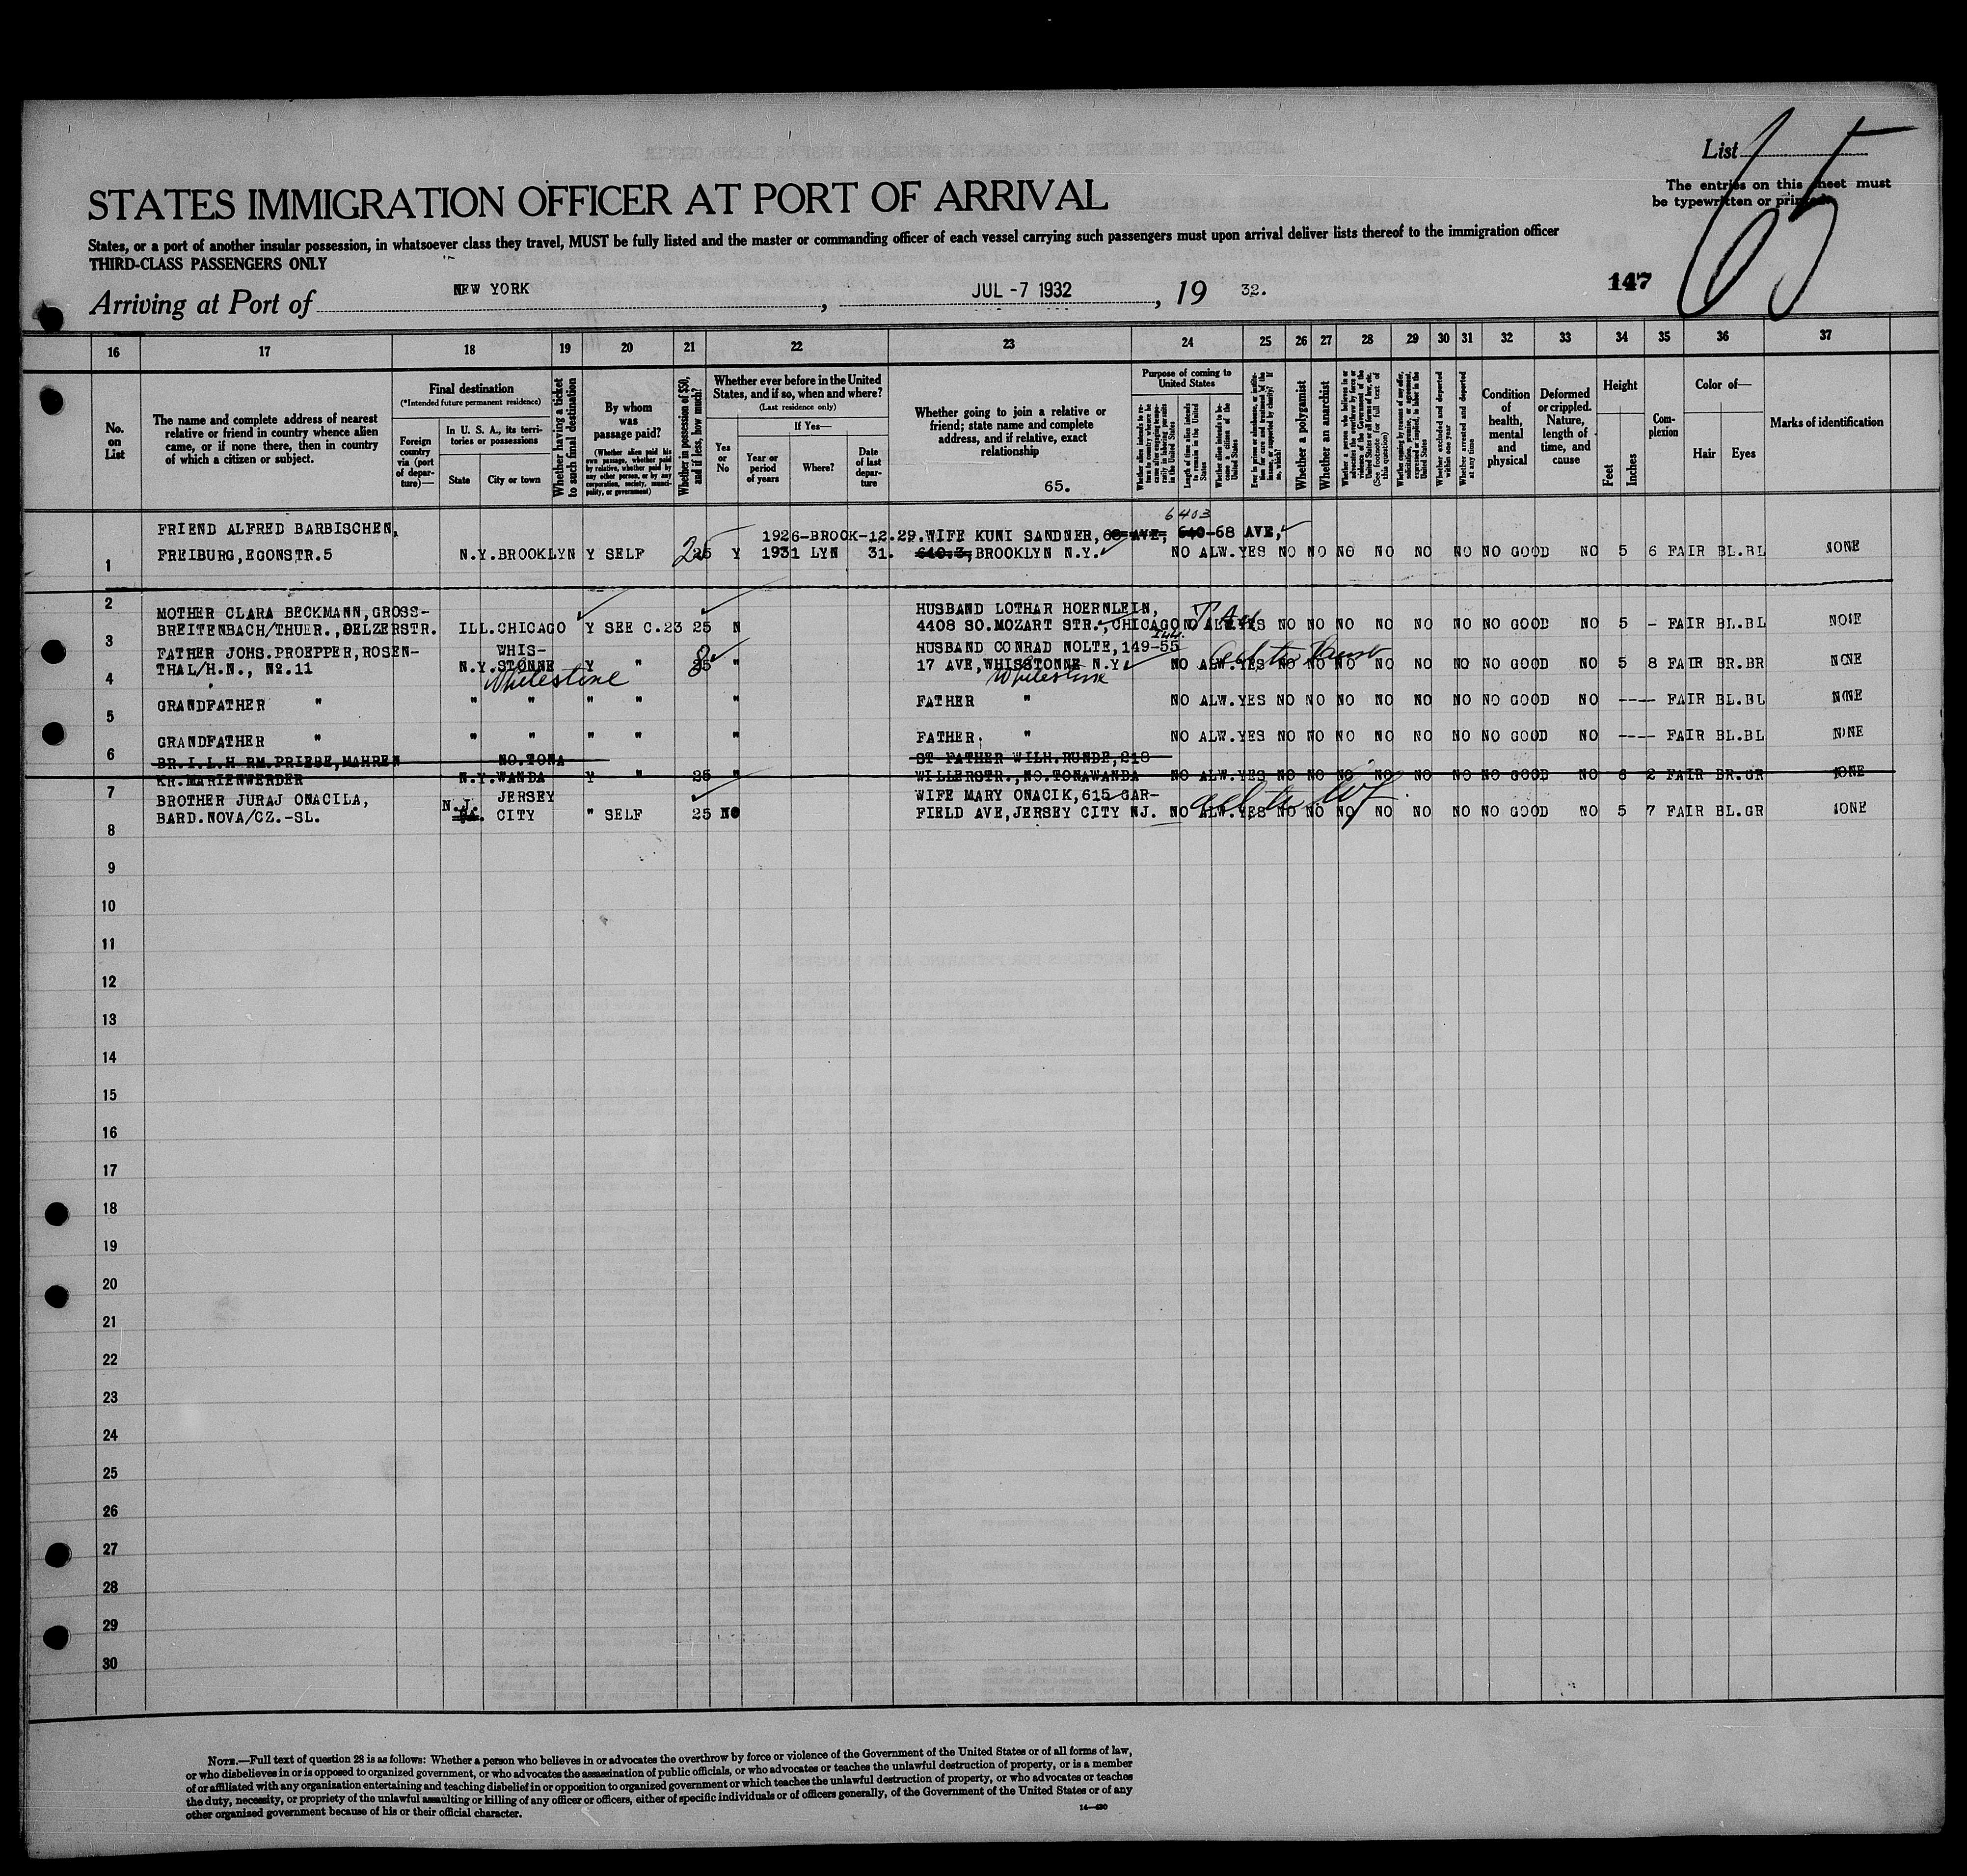 List 65
The entries on this sheet must
be typewritten or printed.
STATES IMMIGRATION OFFICER AT PORT OF ARRIVAL
States, or a port of another insular possession, in whatsoever class they travel, MUST be fully listed and the master or commanding officer of each vessel carrying such passengers must upon arrival deliver lists thereof to the immigration officer
THIRD-CLASS PASSENGERS ONLY
147
Arriving at Port of NEW YORK, JUL -7 1932, 19 32.
16 17 18 19 20 21 22 23 24 25 26 27 28 29 30 31 32 33 34 35 36 37
No. on List
The name and complete address of nearest
relative or friend in country whence alien
came, or if none there, then in country
of which a citizen or subject.
Final destination
(*Intended future permanent residence)
Foreign country via (port of departure)—
In U. S. A., its territories or possessions
State
City or town
Whether having a ticket to such final destination
By whom was passage paid?
(Whether alien paid his own passage, whether paid by relative, whether paid by any other person, or by any corporation, society, municipality, or government)
Whether in possession of $50, and if less, how much?
Whether ever before in the United States, and if so, when and where?
(Last residence only)
Yes or No
If Yes—
Year or period of years
Where?
Date of last departure
Whether going to join a relative or
friend; state name and complete
address, and if relative, exact
relationship
65.
Purpose of coming to United States
Whether alien intends to return to country whence he came after engaging temporarily in laboring pursuits in the United States
Length of time alien intends to remain in the United States
Whether alien intends to become a citizen of the United States
Ever in prison or almshouse, or institution for care and treatment of the insane, or supported by charity? If so, which?
Whether a polygamist
Whether an anarchist
Whether excluded and deported within one year
Whether arrested and deported at any time
Condition of health, mental and physical
Deformed or crippled. Nature, length of time, and cause
Height
Feet
Inches
Complexion
Color of—
Hair
Eyes
Marks of identification
6403
FRIEND ALFRED BARBISCHEN, 1926-BROOK-12.29. WIFE KUNI SANDNER, 68 AVE, 640-68 AVE,
1 FREIBURG, EGONSTR.5 N.Y. BROOKLYN Y SELF 25 25 Y 1931 LYN 31. 640.3, BROOKLYN N.Y. NO ALW. YES NO NO NO NO NO NO NO GOOD NO 5 6 FAIR BL.BL NONE
2 MOTHER CLARA BECKMANN, GROSS- HUSBAND LOTHAR HOERNLEIN,
BREITENBACH/THUER., OELZERSTR. ILL. CHICAGO Y SEE C.23 25 N 4408 SO.MOZART STR., CHICAGO Ill. NO ALW. YES NO NO NO NO NO NO NO GOOD NO 5 - FAIR BL.BL NONE
3 FATHER JOHS. PROEPPER, ROSEN- WHIS- HUSBAND CONRAD NOLTE, 149-55
THAL/H.N., No.11 N.Y. STONNE Y " 8 25 " 17 AVE, WHISSTONNE N.Y. NO ALW. YES NO NO NO NO NO NO NO GOOD NO 5 8 FAIR BR.BR NONE
4 Whitestone Whitestone
GRANDFATHER " " " " " " FATHER " NO ALW. YES NO NO NO NO NO NO NO GOOD NO ---- FAIR BL.BL NONE
5
GRANDFATHER " " " " " " FATHER " NO ALW. YES NO NO NO NO NO NO NO GOOD NO ---- FAIR BL.BL NONE
6 BR.I.L.H RM.PRIEBE, MAHREN NO.TONA ST FATHER WILH.RUNDE, 218
KR.MARIENWERDER N.Y. WANDA Y " 25 " WILLERSTR., NO.TONAWANDA NO ALW. YES NO NO NO NO NO NO NO GOOD NO 6 2 FAIR BR.GR NONE
7 BROTHER JURAJ ONACILA, N.J. JERSEY WIFE MARY ONACIK, 615 GAR-
BARD.NOVA/CZ.-SL. CITY " SELF 25 NO FIELD AVE, JERSEY CITY NJ. NO ALW. YES NO NO NO NO NO NO NO GOOD NO 5 7 FAIR BL.GR NONE
8
9
10
11
12
13
14
15
16
17
18
19
20
21
22
23
24
25
26
27
28
29
30
NOTE.—Full text of question 28 is as follows: Whether a person who believes in or advocates the overthrow by force or violence of the Government of the United States or of all forms of law,
or who disbelieves in or is opposed to organized government, or who advocates the assassination of public officials, or who advocates or teaches the unlawful destruction of property, or is a member
of or affiliated with any organization entertaining and teaching disbelief in or opposition to organized government or which teaches the unlawful destruction of property, or who advocates or teaches
the duty, necessity, or propriety of the unlawful assaulting or killing of any officer or officers, either of specific individuals or of officers generally, of the Government of the United States or of any
other organized government because of his or their official character.
14—430